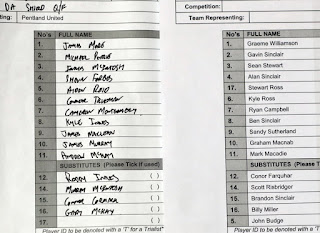 DA SHIELD Q/F
ting: Pentland United
No's FULL NAME
1. JAMES MORE
2. MICHAEL
3. JAMES McINTOSH
4. SHAUN FORBES
5. REID
6. GRANT
7. CAMERON MONTGOMERY
8. KYLE INNES
9. JAMES MACLEAN
10. JAMES MURRAY
11. McKAY
SUBSTITUTES (Please Tick if used)
12. RODDY INNES ( )
14. MURRAY McINTOSH ( )
15. CONOR CORMACK ( )
16. GARY McKAY ( )
17. ( )
Player ID to be denoted with a 'T' for a Trialist*
Competition:
Team Representing:
No's FULL NAME
1. Graeme Williamson
2. Gavin Sinclair
3. Sean Stewart
4. Alan Sinclair
17. Stewart Ross
6. Kyle Ross
7. Ryan Campbell
8. Ben Sinclair
9. Sandy Sutherland
10. Graham Macnab
11. Mark Macadie
SUBSTITUTES (Please T
12. Conor Farquhar
14. Scott Risbridger
15. Brandon Sinclair
16. Billy Miller
5. John Budge
Player ID to be denoted wi